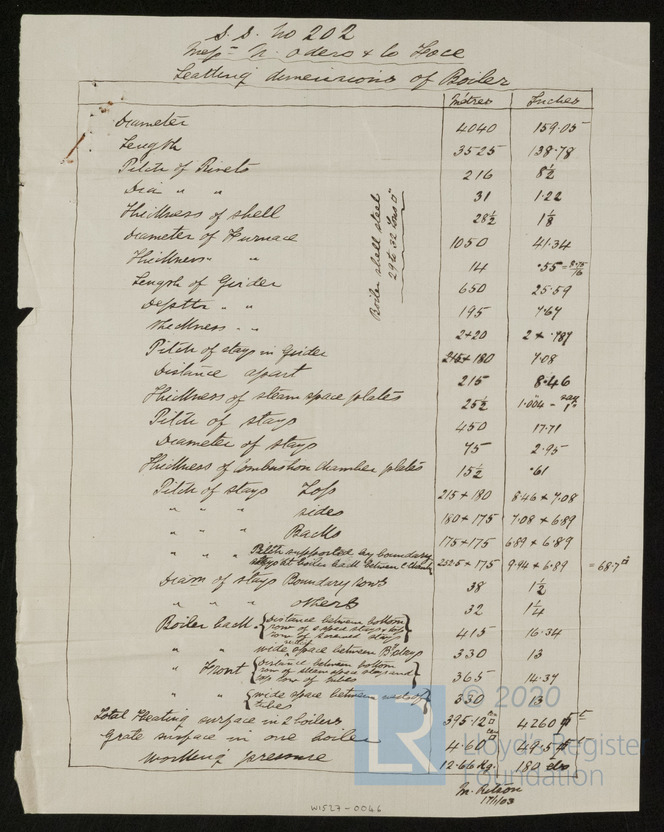 S.S. No 202
Messrs N. Odero & Co Foce
Scantling dimensions of Boiler
Metres Inches
Diameter 4040 159.05
Length 3525 138.78
Pitch of Rivets 216 8½
Dia " " 31 1.22
Thickness of shell 28½ 1⅛
Diameter of Furnace 1050 41.34
Thickness " " 14 .55 = 8.75/16
Length of Girder 650 25.59
Depth " " 195 7.67
Thickness " " 2+20 2 x .787
Pitch of stays in Girder 215 x 180 7.08
Distance apart 215 8.46
Thickness of steam space plates 25½ 1.004 - say 1"
Pitch of stays 450 17.71
Diameter of stays 75 2.95
Thickness of Combustion chamber plates 15½ .61
Pitch of stays Tops 215 x 180 8.46 x 7.08
" " " sides 180 x 175 7.08 x 6.89
" " " Backs 175 x 175 6.89 x 6.89
" " " Pitch supported by boundary
stays at boiler back between C. Chamb 252.5 x 175 9.94 x 6.89 = 68.7
Diam of stays Boundary rows 38 1½
" " " others 32 1¼
Boiler back {distance between bottom
row of steam stays & top
row of screwed stays} 415 16.34
" " wide space between B stays 330 13
" Front {distance between bottom
row of steam space stays and
top row of tubes} 365 14.37
" " {wide space between nests of
tubes} 330 13
Total Heating surface in 2 boilers 395.12 4260
Grate surface in one boiler 4.60 49.5
Working pressure 12.66 Kg. 180 lbs
Boiler shell steel
29 to 32 Tons □"
17/1/03
W1527-0046
© 2020
LR
Lloyd's Register
Foundation